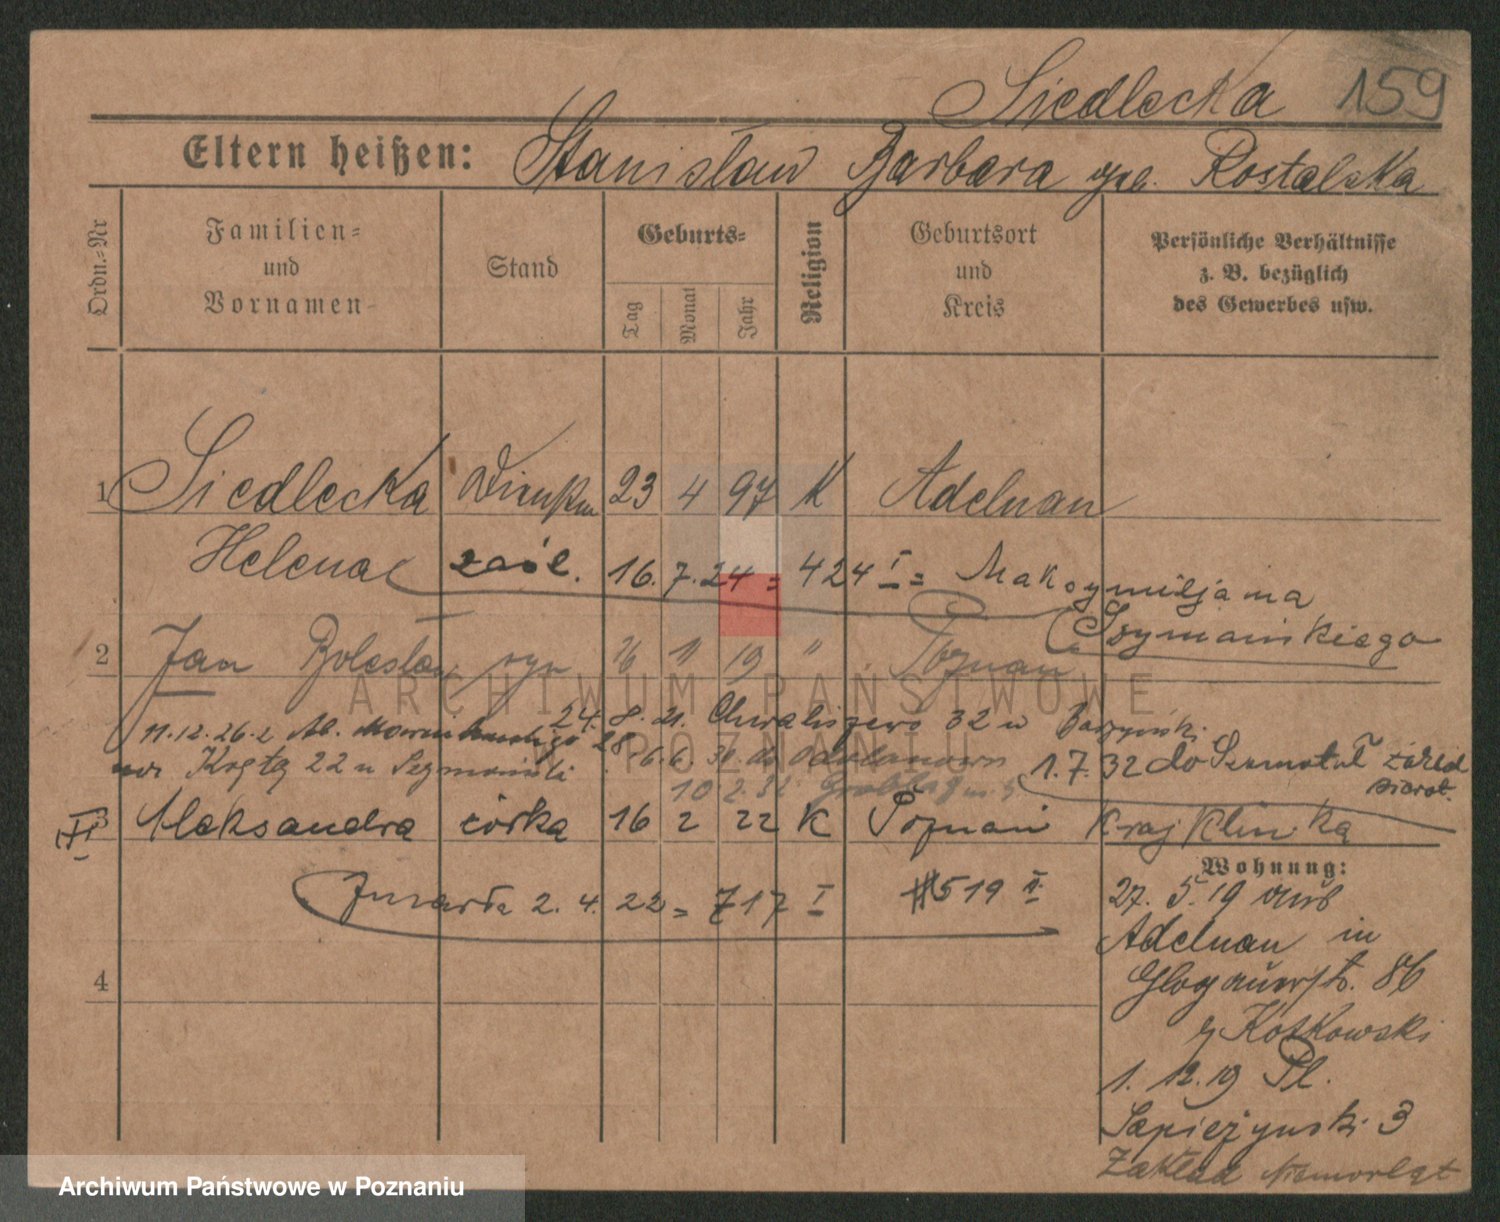 Siedlecka 159
Eltern heißen: Stanisław Barbara geb. Rostalska
Ordn.-Nr
Familien- und Vornamen
Stand
Geburts-
Tag
Monat
Jahr
Religion
Geburtsort und Kreis
Persönliche Verhältnisse z. B. bezüglich des Gewerbes usw.
1 Siedlecka 23 4 97 K Adelnau
Helena zaśl. 16. 7. 24 = 424 I = Maksymiljana
Szymańskiego
2 Jan Bolesław syn 19 " Poznań
ARCHIWUM PAŃSTWOWE
W POZNANIU
24. 8. 21. Chwaliszewo 32 u
11.12.26 z
Kręta 22 u
28. 6.6. 31. do Odolanowa
1.7.32 do Szamotuł zakład
10.2.32
3 Aleksandra córka 16 2 22 K Poznań Kraj Klinika
VI
Zmarła 2. 4. 22 = 717 I #519 II
Wohnung:
27. 5. 19 aus
Adelnau in
Glogauerstr. 86
b/ Kotkowski
1. 12. 19 Pl.
Sapieżyński 3
Zakład Niemowląt
4
Archiwum Państwowe w Poznaniu